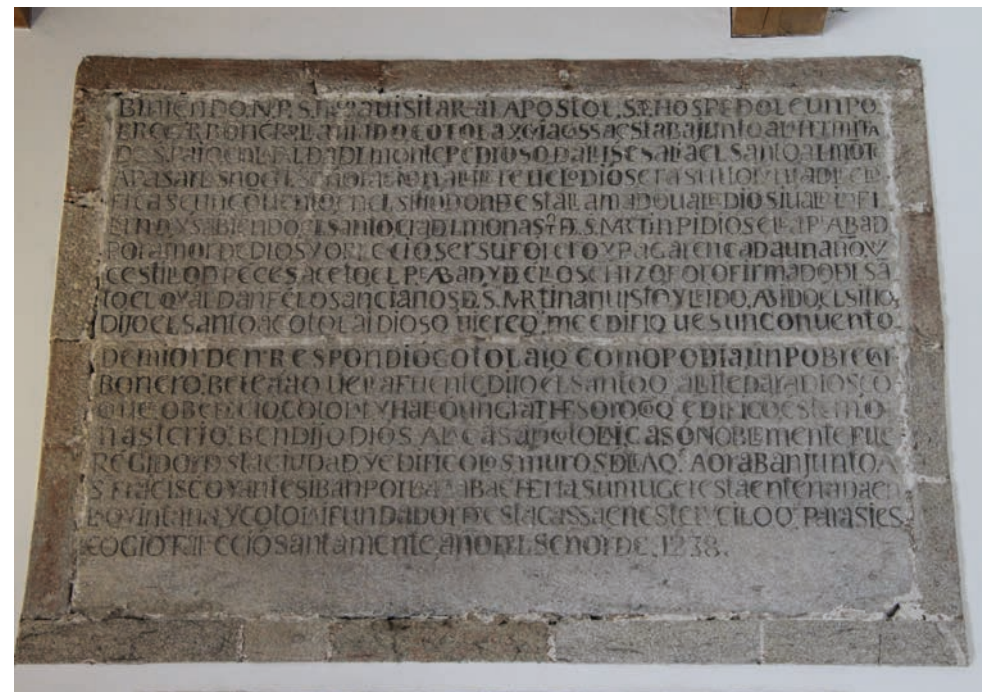 BINIENDO.N.P.S.FRco A VISITAR AL APOSTOL.STo HOSPEDOLE UN PO
BRE CARBONERO LLAMADO COTOLAY CUIA CASSA ESTABA JUNTO A LA HERMITA
DE S.PAIO EN LA FALDA DEL MONTE PEDROSO.DALLI SE SALIA EL SANTO AL MOTE
A PASAR LAS NOCHES EN ORACION ALLI LE REUELO DIOS ERA SU VOLUTAD LE EDI
FICASE UN COUENTO EN EL SITIO DONDE ESTA LLAMADO UAL DE DIOS I UAL DE INFI
ERNO Y SABIENDO EL SANTO ERA DEL MONASTo DE.S.MARTIN PIDIOSELE AL Pe ABAD
POR AMOR DE DIOS Y OFRECIO SER SU FORERO Y PAGAR EN CADA UN AÑO.UN
CESTILLO DE PECES ACETO EL Pe ABAD Y DELLO SE HIZO FORO FIRMADO DEL SA
TO EL QUAL DAN FE LOS ANCIANOS DE.S.MARTIN AN UISTO Y LEIDO.ABIDO EL SITIO
DIJO EL SANTO A COTOLAI DIOS QUIERE Q.ME EDIFIQUES UN CONUENTO
DE MI ORDEN RESPONDIO COTOLAI Q COMO PODIA UN POBRE CAR
BONERO.BETE A AQUELLA FUENTE DIJO EL SANTO Q ALLI TE DARA DIOS CO
QUE OBEDECIO COTOLAY HALLO UN GRA THESORO CO Q EDIFICO ESTE MO
NASTERIO.BENDIJO DIOS LA CASA DE COTOLAI CASO NOBLEMENTE FUE
REGIDOR DESTA CIUDAD Y EDIFICO LOS MUROS DELLA Q.AORA BAN JUNTO A
S FRACISCO Y ANTES IBAN POR LA AZABACHERIA SU MUGER ESTA ENTERRADA EN
LA QUINTANA Y COTOLAI FUNDADOR DESTA CASSA EN ESTE LUCILO Q.PARA SI ES
COGIO FALLECIO SANTAMENTE AÑO DEL SEÑOR DE.1238.